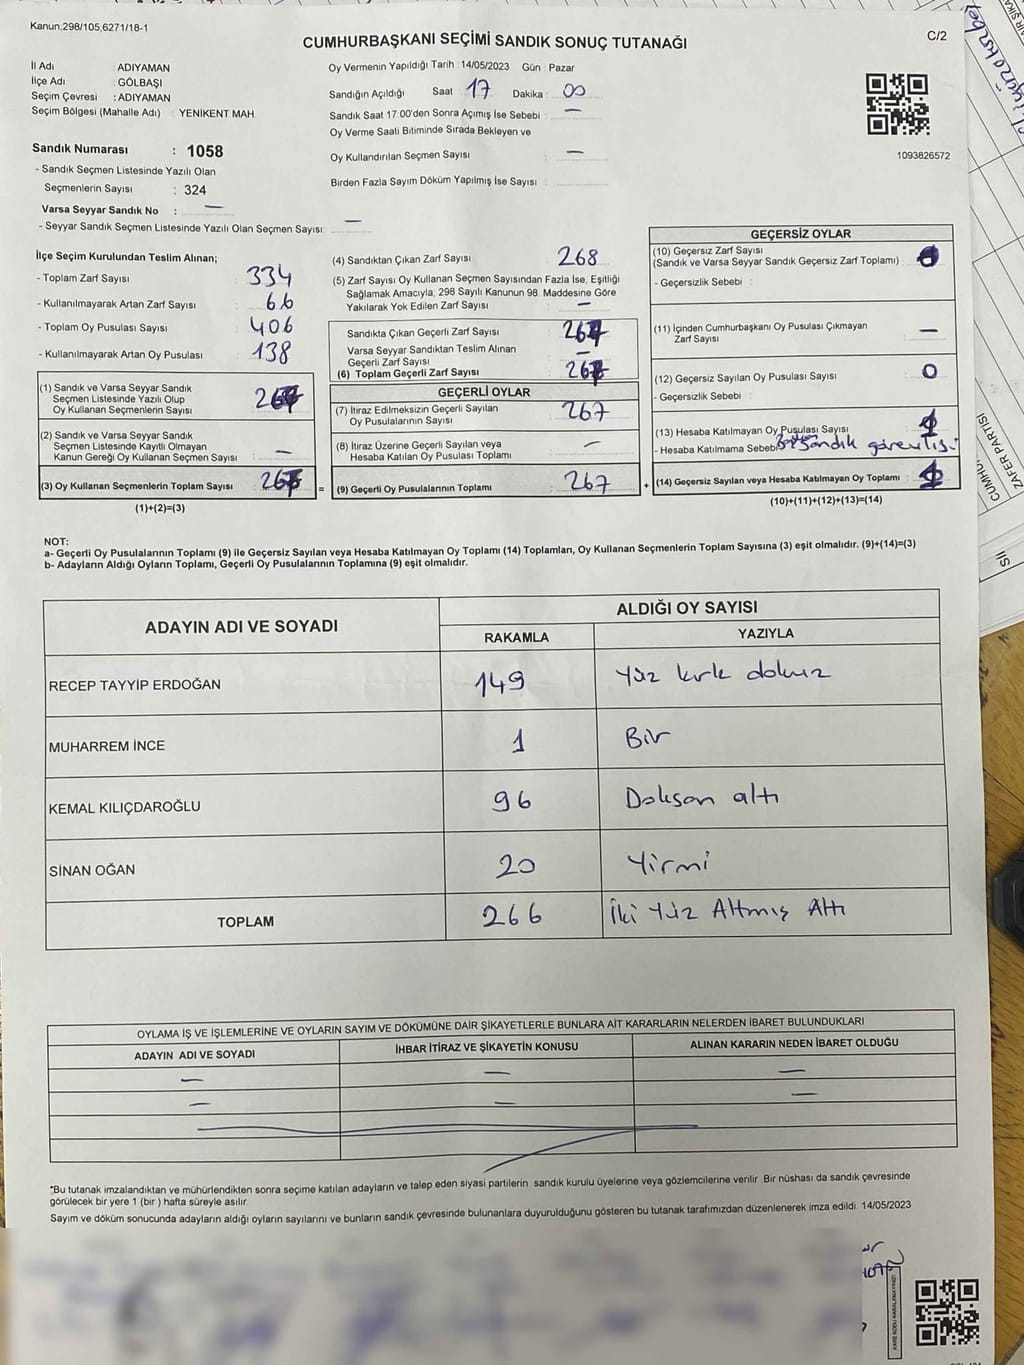 Kanun;298/105,6271/18-1
C/2
CUMHURBAŞKANI SEÇİMİ SANDIK SONUÇ TUTANAĞI
İl Adı ADIYAMAN
İlçe Adı : GÖLBAŞI
Seçim Çevresi : ADIYAMAN
Seçim Bölgesi (Mahalle Adı) : YENİKENT MAH.
Sandık Numarası : 1058
- Sandık Seçmen Listesinde Yazılı Olan
Seçmenlerin Sayısı : 324
Varsa Seyyar Sandık No : —
- Seyyar Sandık Seçmen Listesinde Yazılı Olan Seçmen Sayısı: —
Oy Vermenin Yapıldığı Tarih : 14/05/2023 Gün : Pazar
Sandığın Açıldığı Saat 17 Dakika : 00
Sandık Saat 17:00'den Sonra Açımış İse Sebebi : —
Oy Verme Saati Bitiminde Sırada Bekleyen ve
Oy Kullandırılan Seçmen Sayısı : —
Birden Fazla Sayım Döküm Yapılmış İse Sayısı :
1093826572
İlçe Seçim Kurulundan Teslim Alınan;
- Toplam Zarf Sayısı : 334
- Kullanılmayarak Artan Zarf Sayısı : 66
- Toplam Oy Pusulası Sayısı : 406
- Kullanılmayarak Artan Oy Pusulası : 138
(1) Sandık ve Varsa Seyyar Sandık
Seçmen Listesinde Yazılı Olup
Oy Kullanan Seçmenlerin Sayısı
(2) Sandık ve Varsa Seyyar Sandık
Seçmen Listesinde Kayıtlı Olmayan
Kanun Gereği Oy Kullanan Seçmen Sayısı : —
(3) Oy Kullanan Seçmenlerin Toplam Sayısı
(1)+(2)=(3)
(4) Sandıktan Çıkan Zarf Sayısı : 268
(5) Zarf Sayısı Oy Kullanan Seçmen Sayısından Fazla İse, Eşitliği
Sağlamak Amacıyla, 298 Sayılı Kanunun 98. Maddesine Göre
Yakılarak Yok Edilen Zarf Sayısı : —
Sandıkta Çıkan Geçerli Zarf Sayısı
Varsa Seyyar Sandıktan Teslim Alınan
Geçerli Zarf Sayısı —
(6) Toplam Geçerli Zarf Sayısı
GEÇERLİ OYLAR
(7) İtiraz Edilmeksizin Geçerli Sayılan
Oy Pusulasının Sayısı : 267
(8) İtiraz Üzerine Geçerli Sayılan veya
Hesaba Katılan Oy Pusulası Toplamı : —
= (9) Geçerli Oy Pusulalarının Toplamı : 267 +
GEÇERSİZ OYLAR
(10) Geçersiz Zarf Sayısı
(Sandık ve Varsa Seyyar Sandık Geçersiz Zarf Toplamı) :
- Geçersizlik Sebebi :
(11) İçinden Cumhurbaşkanı Oy Pusulası Çıkmayan
Zarf Sayısı : —
(12) Geçersiz Sayılan Oy Pusulası Sayısı : 0
- Geçersizlik Sebebi :
(13) Hesaba Katılmayan Oy Pusulası Sayısı :
- Hesaba Katılmama Sebebi Sandık görevlisi
(14) Geçersiz Sayılan veya Hesaba Katılmayan Oy Toplamı :
(10)+(11)+(12)+(13)=(14)
NOT:
a- Geçerli Oy Pusulalarının Toplamı (9) ile Geçersiz Sayılan veya Hesaba Katılmayan Oy Toplamı (14) Toplamları, Oy Kullanan Seçmenlerin Toplam Sayısına (3) eşit olmalıdır. (9)+(14)=(3)
b- Adayların Aldığı Oyların Toplamı, Geçerli Oy Pusulalarının Toplamına (9) eşit olmalıdır.
ADAYIN ADI VE SOYADI ALDIĞI OY SAYISI
RAKAMLA YAZIYLA
RECEP TAYYİP ERDOĞAN 149 Yüz kırk dokuz
MUHARREM İNCE 1 Bir
KEMAL KILIÇDAROĞLU 96 Doksan altı
SİNAN OĞAN 20 Yirmi
TOPLAM 266 İki Yüz Altmış Altı
OYLAMA İŞ VE İŞLEMLERİNE VE OYLARIN SAYIM VE DÖKÜMÜNE DAİR ŞİKAYETLERLE BUNLARA AİT KARARLARIN NELERDEN İBARET BULUNDUKLARI
ADAYIN ADI VE SOYADI İHBAR İTİRAZ VE ŞİKAYETİN KONUSU ALINAN KARARIN NEDEN İBARET OLDUĞU
— — —
— — —
*Bu tutanak imzalandıktan ve mühürlendikten sonra seçime katılan adayların ve talep eden siyasi partilerin sandık kurulu üyelerine veya gözlemcilerine verilir. Bir nüshası da sandık çevresinde
görülecek bir yere 1 (bir ) hafta süreyle asılır.
Sayım ve döküm sonucunda adayların aldığı oyların sayılarını ve bunların sandık çevresinde bulunanlara duyurulduğunu gösteren bu tutanak tarafımızdan düzenlenerek imza edildi. 14/05/2023
KARE KODU KARALAMAYINIZ!
ZAFER PARTİSİ